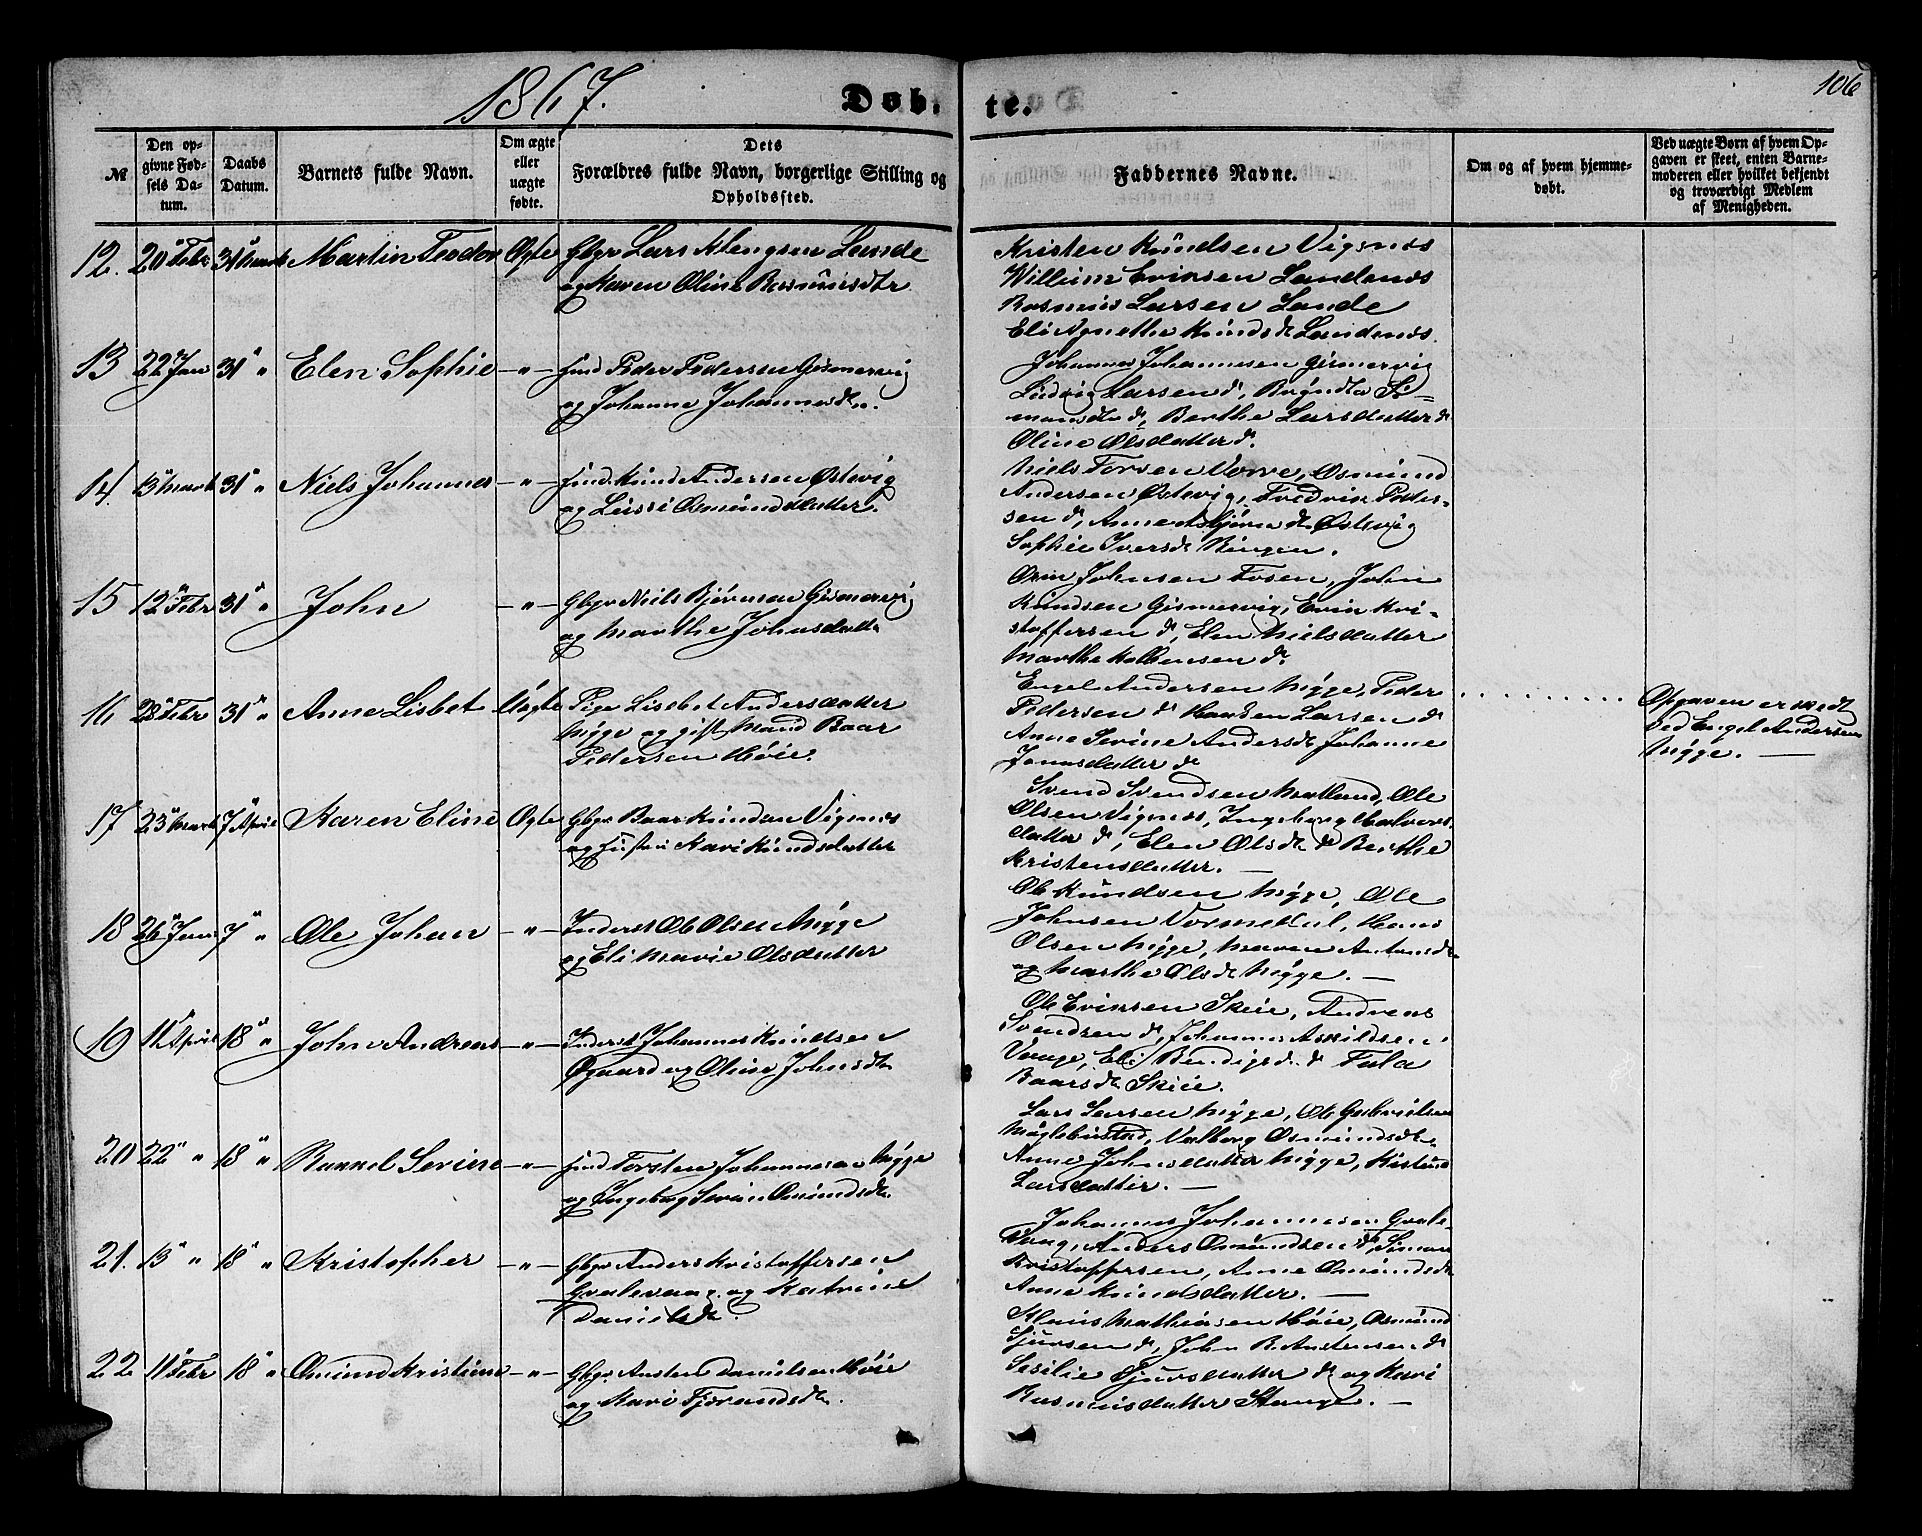 1867. Døb. te. 106
№
Den opgivne Fødsels Datum.
Daabs Datum.
Barnets fulde Navn.
Om ægte eller uægte fødte.
Dets Forældres fulde Navn, borgerlige Stilling og Opholdssted.
Faddernes Navne.
Om og af hvem hjemmedøbt.
Ved uægte Børn af hvem Opgaven er skeet, enten Barnemoderen eller hvilket bekjendt og troværdigt Medlem af Menigheden.
12. 20 Febr 31 Marts Martin Teodor Ægte Gbgr Lars Klengsen Lande
og Karen Oline Rasmusdtr
Kristen Knudsen Vigsnæs
Willum Eriksen Landenæs
Rasmus Larsen Lande
Eli Agnethe Knudsdt Landenæs.
13 22 Jan 31 " Elen Sophie —"— Peder Pedersen Gismervig
og Johanne Johannesdtr.
Johannes Johannesen Gismervig
Ludvig Larsen dº, Si-
monsdtr dº, Berthe Larsdatter dº
Oline Olsdatter dº.
14. 13 Marts 31 " Niels Johannes —"— Knud Andersen Østevig
og Lussi Osmundsdatter.
Niels Torsen Vorre, Osmund
Andersen Østevig, Fredrik Peder-
sen dº, Anne Asbjørnsdt Østevig
Sophie Iversdt Ringen.
15 12 Febr 31 " John —"— Gbgr Niels Bjørnsen Gismervig
og Marthe Johnsdatter
Johnsen Fosen, John
Knudsen Gismervig, Erik Kri-
stoffersen dº, Elen Nielsdatter
Marthe dº.
16 28 Febr 31 " Anne Lisbet Uægte Pige Lisebet Andersdatter
Nygge og gift Mand Baar
Pedersen Høie.
Engel Andersen Nygge, Peder
Pedersen dº Larsen dº
Anne Serine Andersdt Johanne
Jonasdatter dº
Opgaven er skedt
ved Engel Andersen
Nygge. —
17 23 Marts 7 April Karen Eline Ægte Gbgr Baar Knudsen Vigsnæs
og Hustru Kari Knudsdatter
Svend Svendsen Matland, Ole
Olsen Vigsnæs, Ingeborg Halvors-
datter dº, Elen Olsdt dº Berthe
Kristensdatter. —
18 26 Jan 7 " Ole Johan —"— Inderst Ole Olsen Nygge
og Eli Marie Olsdatter
Ole Knudsen Nygge, Ole
Johnsen Hans
Olsen Nygge, Maren
og Marthe Olsdt Nygge. —
19 11 April 18 " John Andreas —"— Inderst Johannes Knudsen
Øgaard og Oline Johnsdt
Ole Eriksen Skeie, Andreas
Svendsen dº, Johannes Askildsen
Vaage, Eli Bendigsdt dº
Baarsdt Skeie.
20 22 " 18 " Rannel Serine —"— Torsten Johannesen Nygge
og Ingeborg Serine Osmundsdt.
Lars Larsen Nygge, Ole Gabrielsen
Møglebustad, Valborg Osmundsdt
Anne Johnsdatter Nygge,
Larsdatter. —
21. 13 " 18 " Kristopher —"— Gbgr Anders Kristoffersen
Gvalevaag og Katrine
Danielsdt.
Johannes Johannesen Gvale-
vaag, Anders Osmundsen dº, Simon
Kristoffersen, Anne Osmundsdt
Anne Knudsdatter. —
22 11 Febr 18 " Osmund Kristian —"— Gbgr Austen Danielsen Høie
og Kari Fjerandsdt.
Mathiasen Høie, Osmund
Sjursen dº, John B. Austensen dº
Sesilie Sjursdatter dº og Kari
Rasmusdatter Stange. —